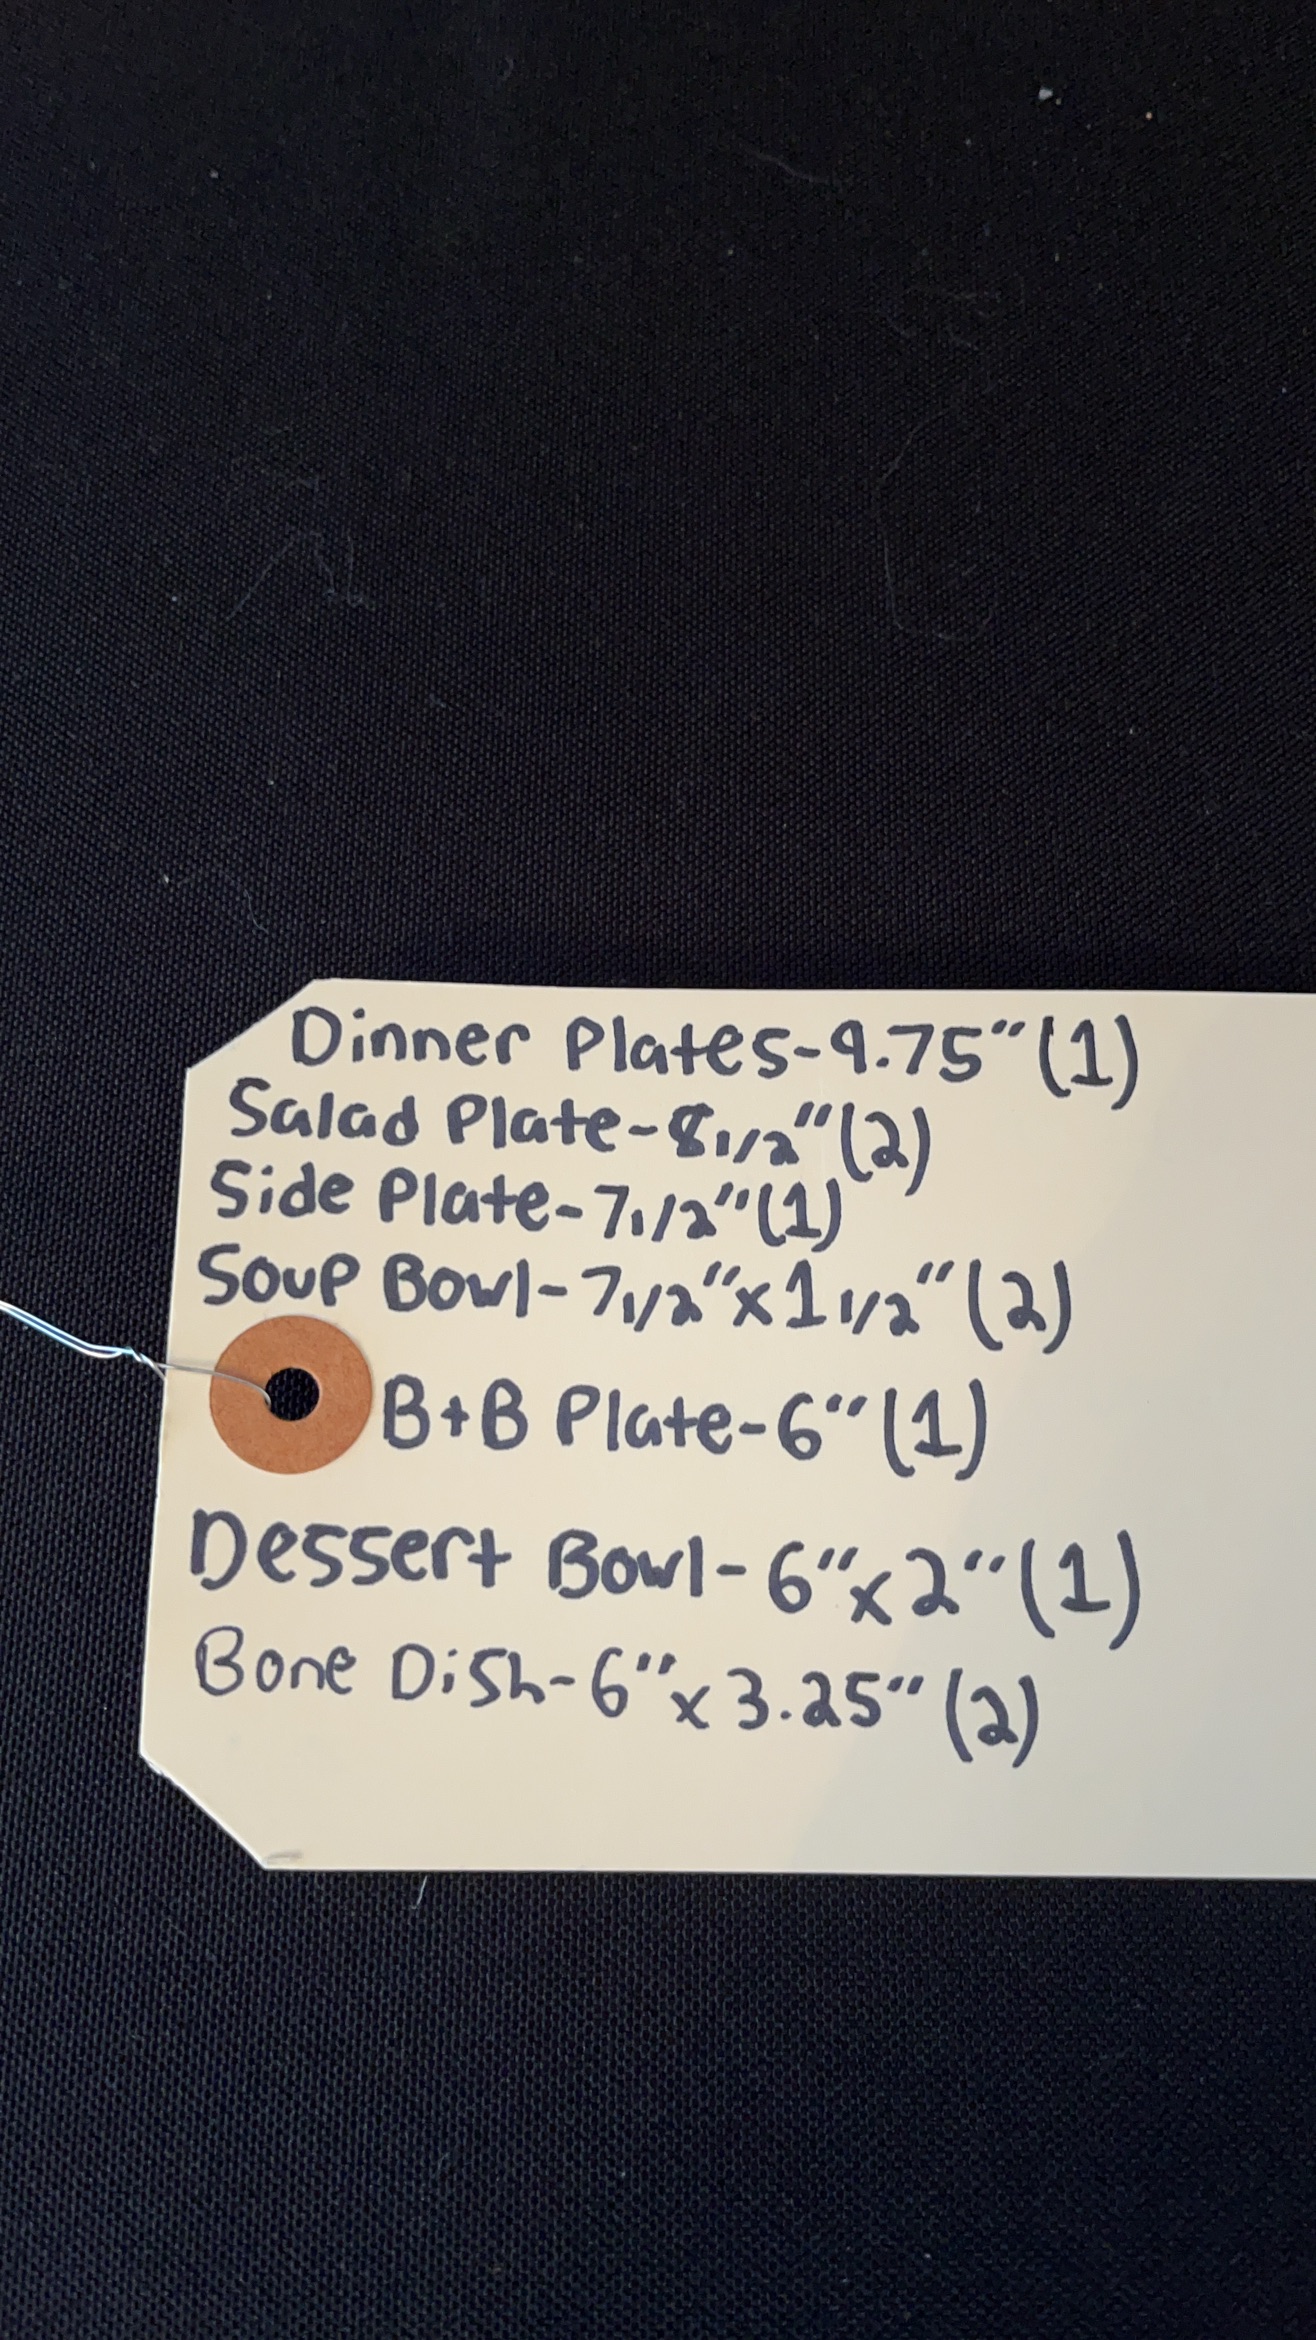 Dinner Plates-9.75"(1)
Salad Plate-8 1/2"(2)
Side Plate-7 1/2"(1)
Soup Bowl-7 1/2"x1 1/2"(2)
B+B Plate-6"(1)
Dessert Bowl-6"x2"(1)
Bone Dish-6"x3.25"(2)